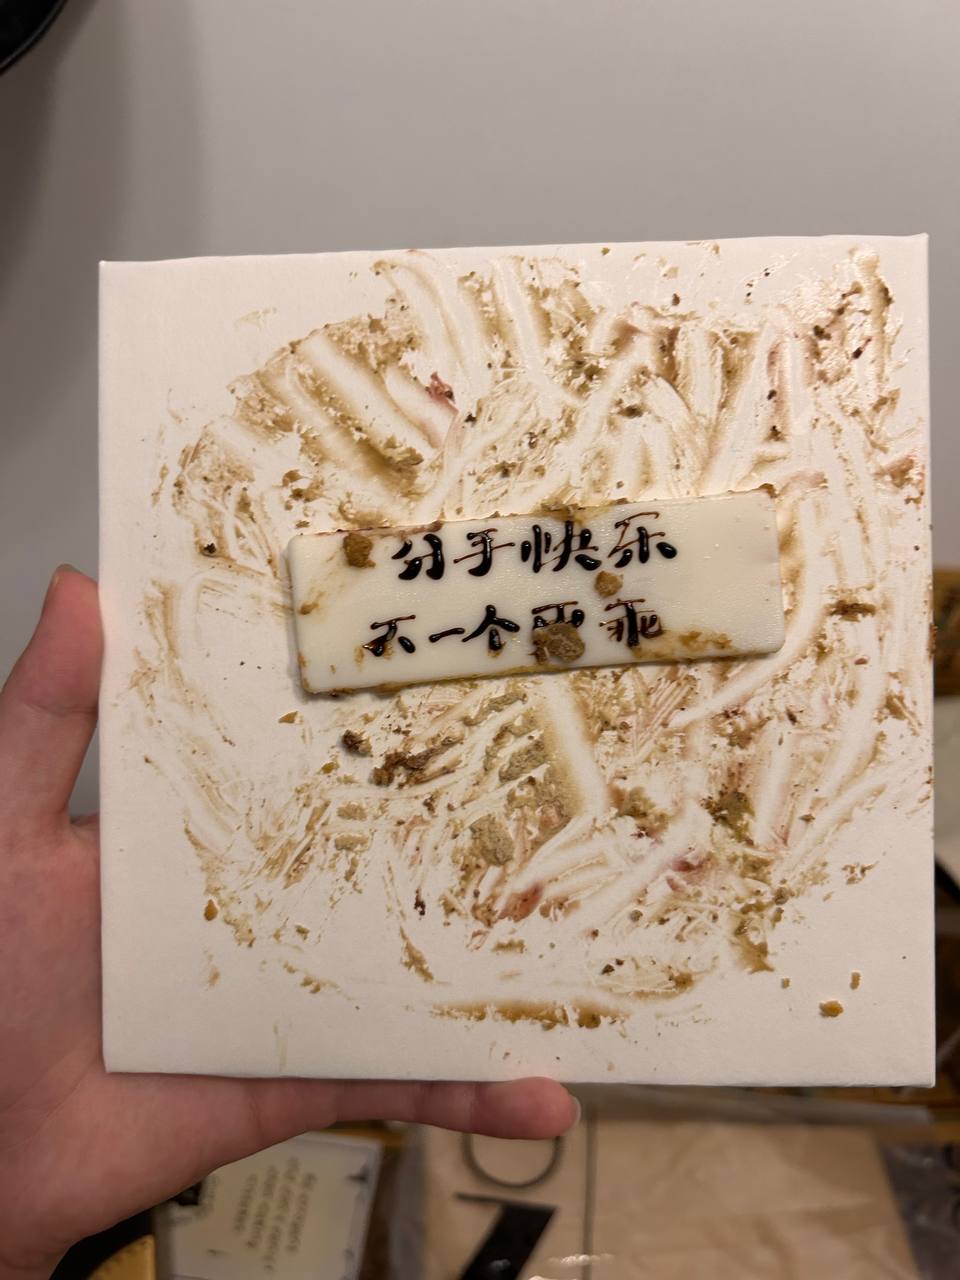 分手快乐
下一个更乖